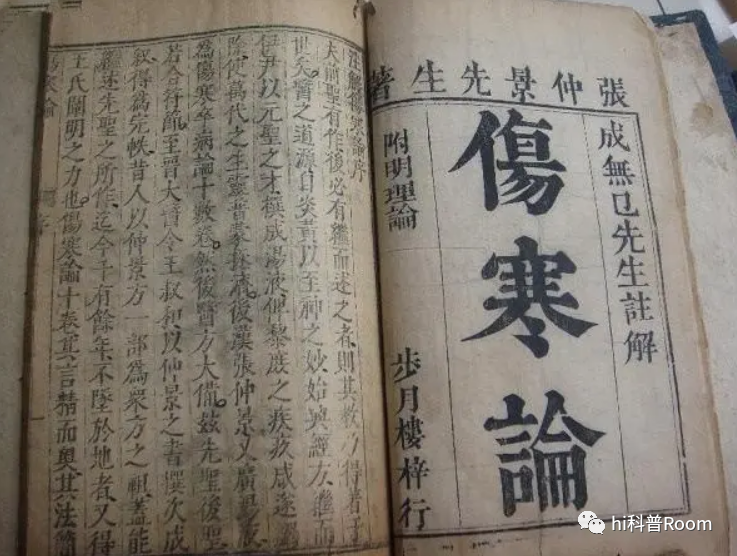 張仲景先生著
成無已先生註解
傷寒論
附明理論
步月樓梓行
註解傷寒論序
夫前聖有作後必有繼而述之者則其教乃得著于
世矣醫之道源自炎黃以至神之妙始興經方繼而
伊尹以元聖之才撰成湯液俾黎庶之疾疢咸遂蠲
除使萬代之生靈普蒙拯濟後漢張仲景又廣湯液
為傷寒卒病論十數卷然後醫方大備茲先聖後聖
若合符節至晉太醫令王叔和以仲景之書撰次成
叙得為完帙昔人以仲景方一部為眾方之祖蓋能
繼述先聖之所作迄今千有餘年不墜於地者又得
王氏闡明之力也傷寒論十卷其言精而奧其法簡
傷寒論
序
hi科普Room